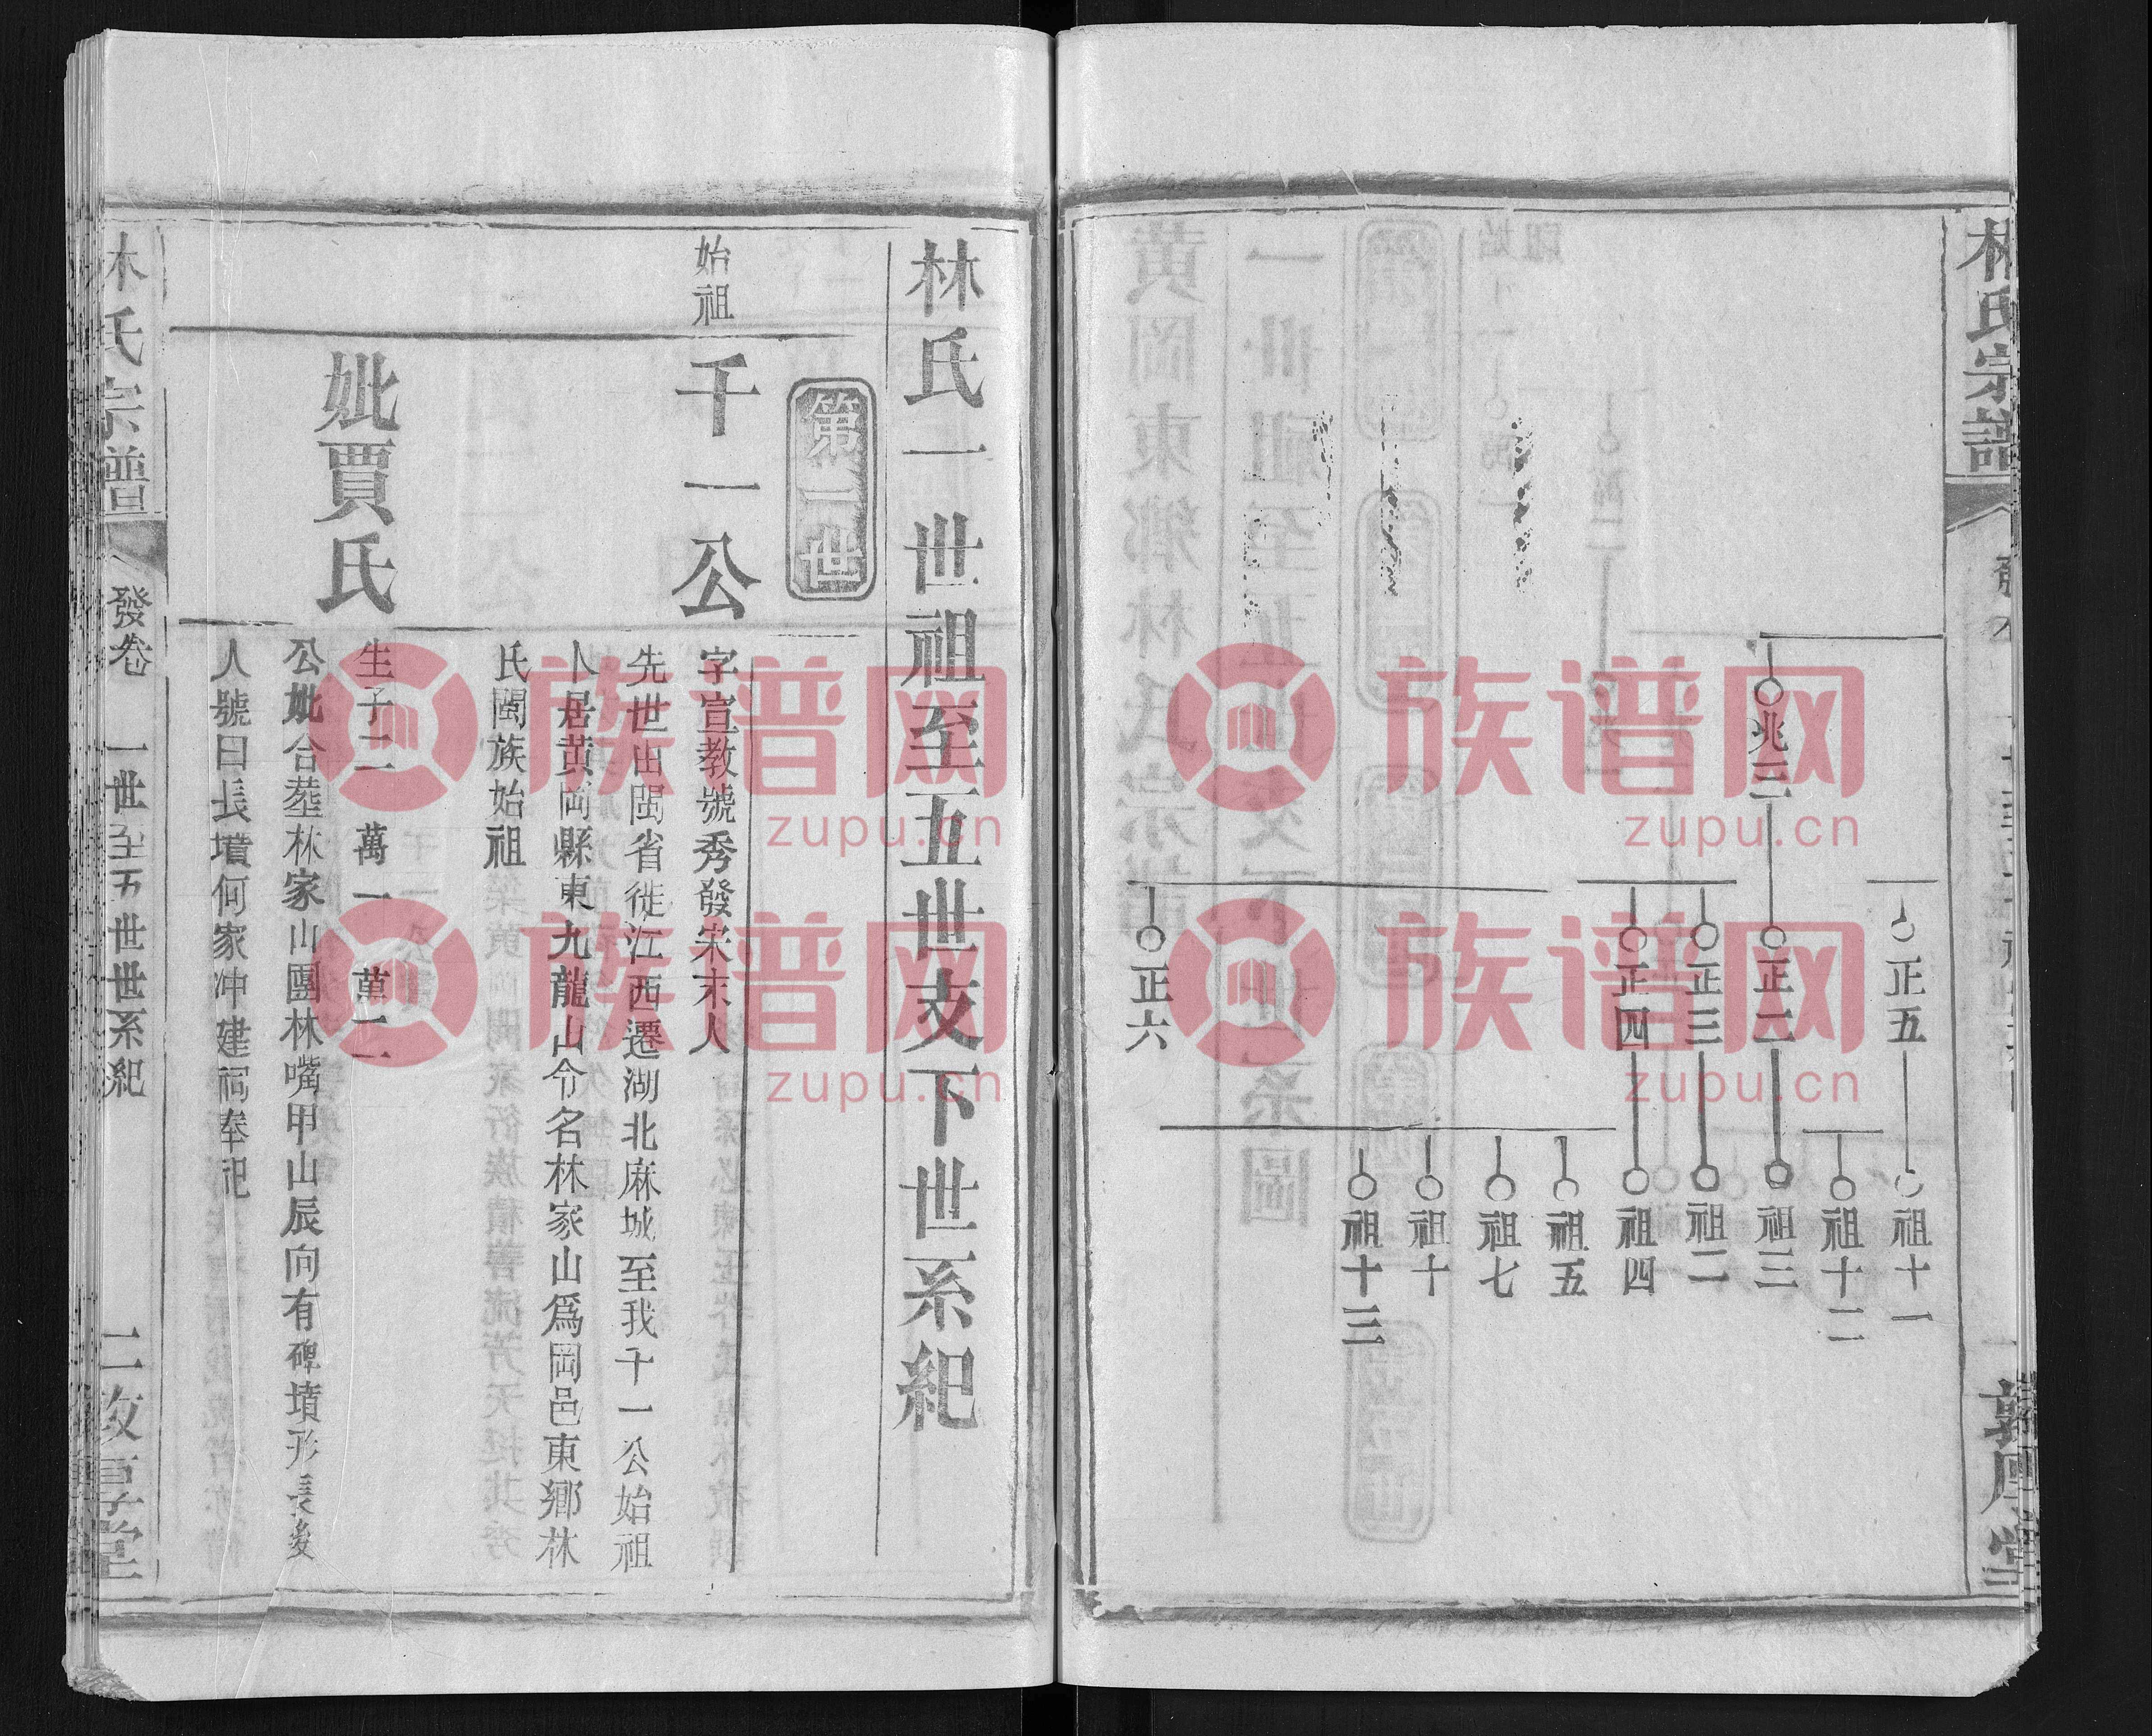 林氏宗譜
敦厚堂
兆三
正五
正二
正三
正四
正六
祖十一
祖十二
祖三
祖二
祖四
祖五
祖七
祖十
祖十三
林氏一世祖至五世支下世系紀
第一世
始祖
千一公
字宣教號秀發宋末人
先世出閩省徙江西遷湖北麻城至我千一公始祖
人居黄岡縣東九龍山令名林家山爲岡邑東鄉林
氏閩族始祖
妣賈氏
生子二 萬一 萬二
公妣合塟林家山團林嘴甲山辰向有碑墳形長后
人號曰長墳何家冲建祠奉祀
林氏宗譜
發卷
一世至五世世系紀
二
敦厚堂
族谱网
zupu.cn
族谱网
zupu.cn
族谱网
zupu.cn
族谱网
zupu.cn